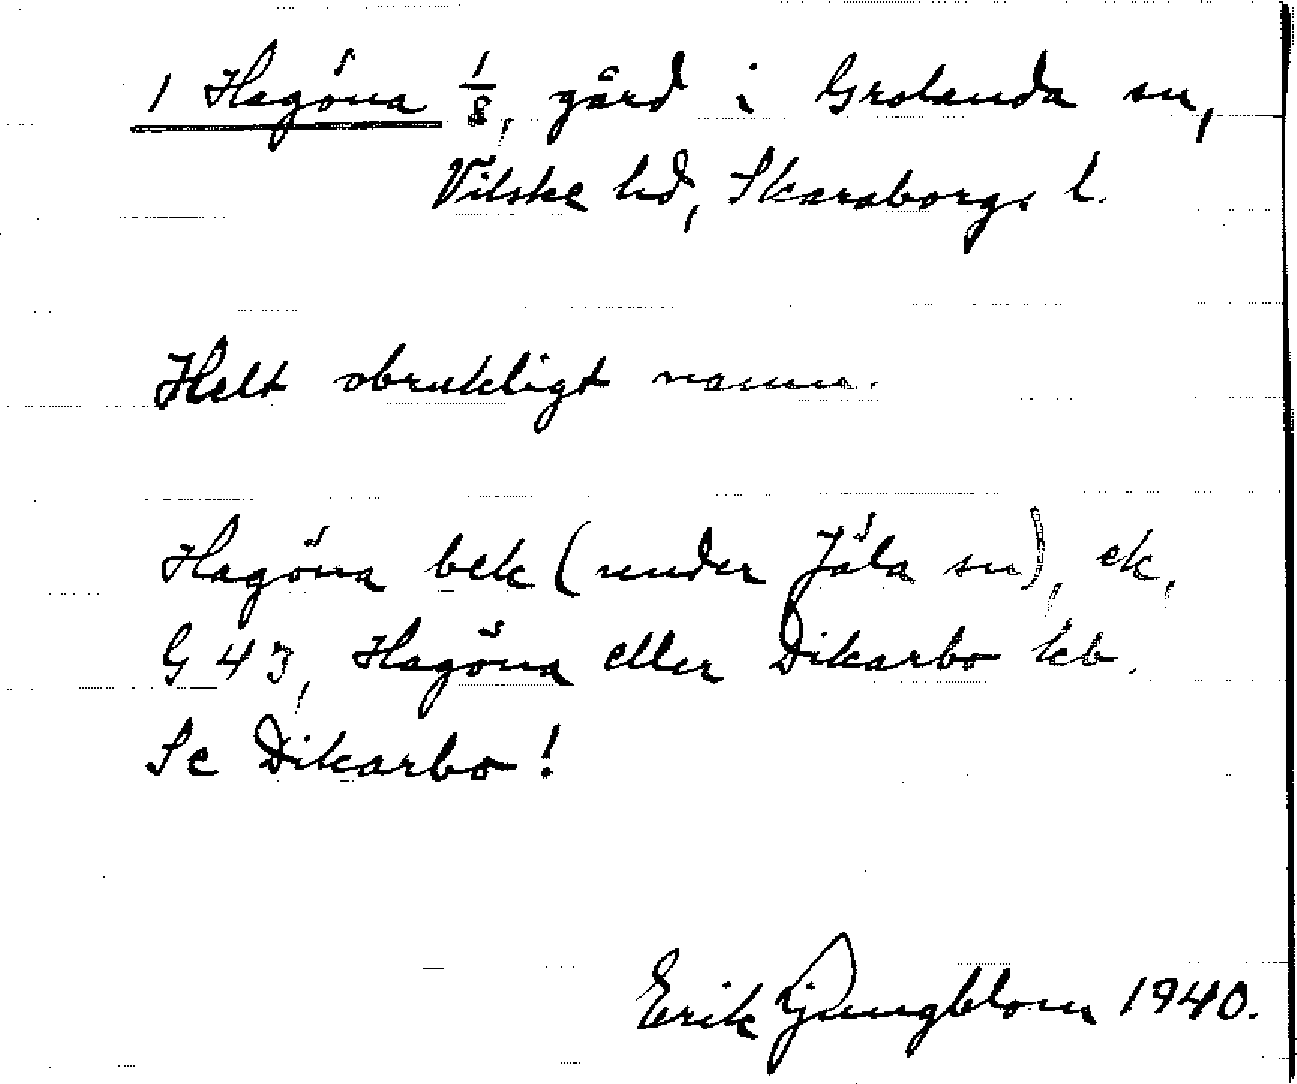 1 Hagöna 1/8, gård i Grolanda sn,
Vilske hd, Skaraborgs l.
Helt obrukligt namn.
Hagöna bek (under Jäla sn), ek,
G 43, Hagöna eller Dikarbo kb.
Se Dikarbo!
Erik Ljungblom 1940.